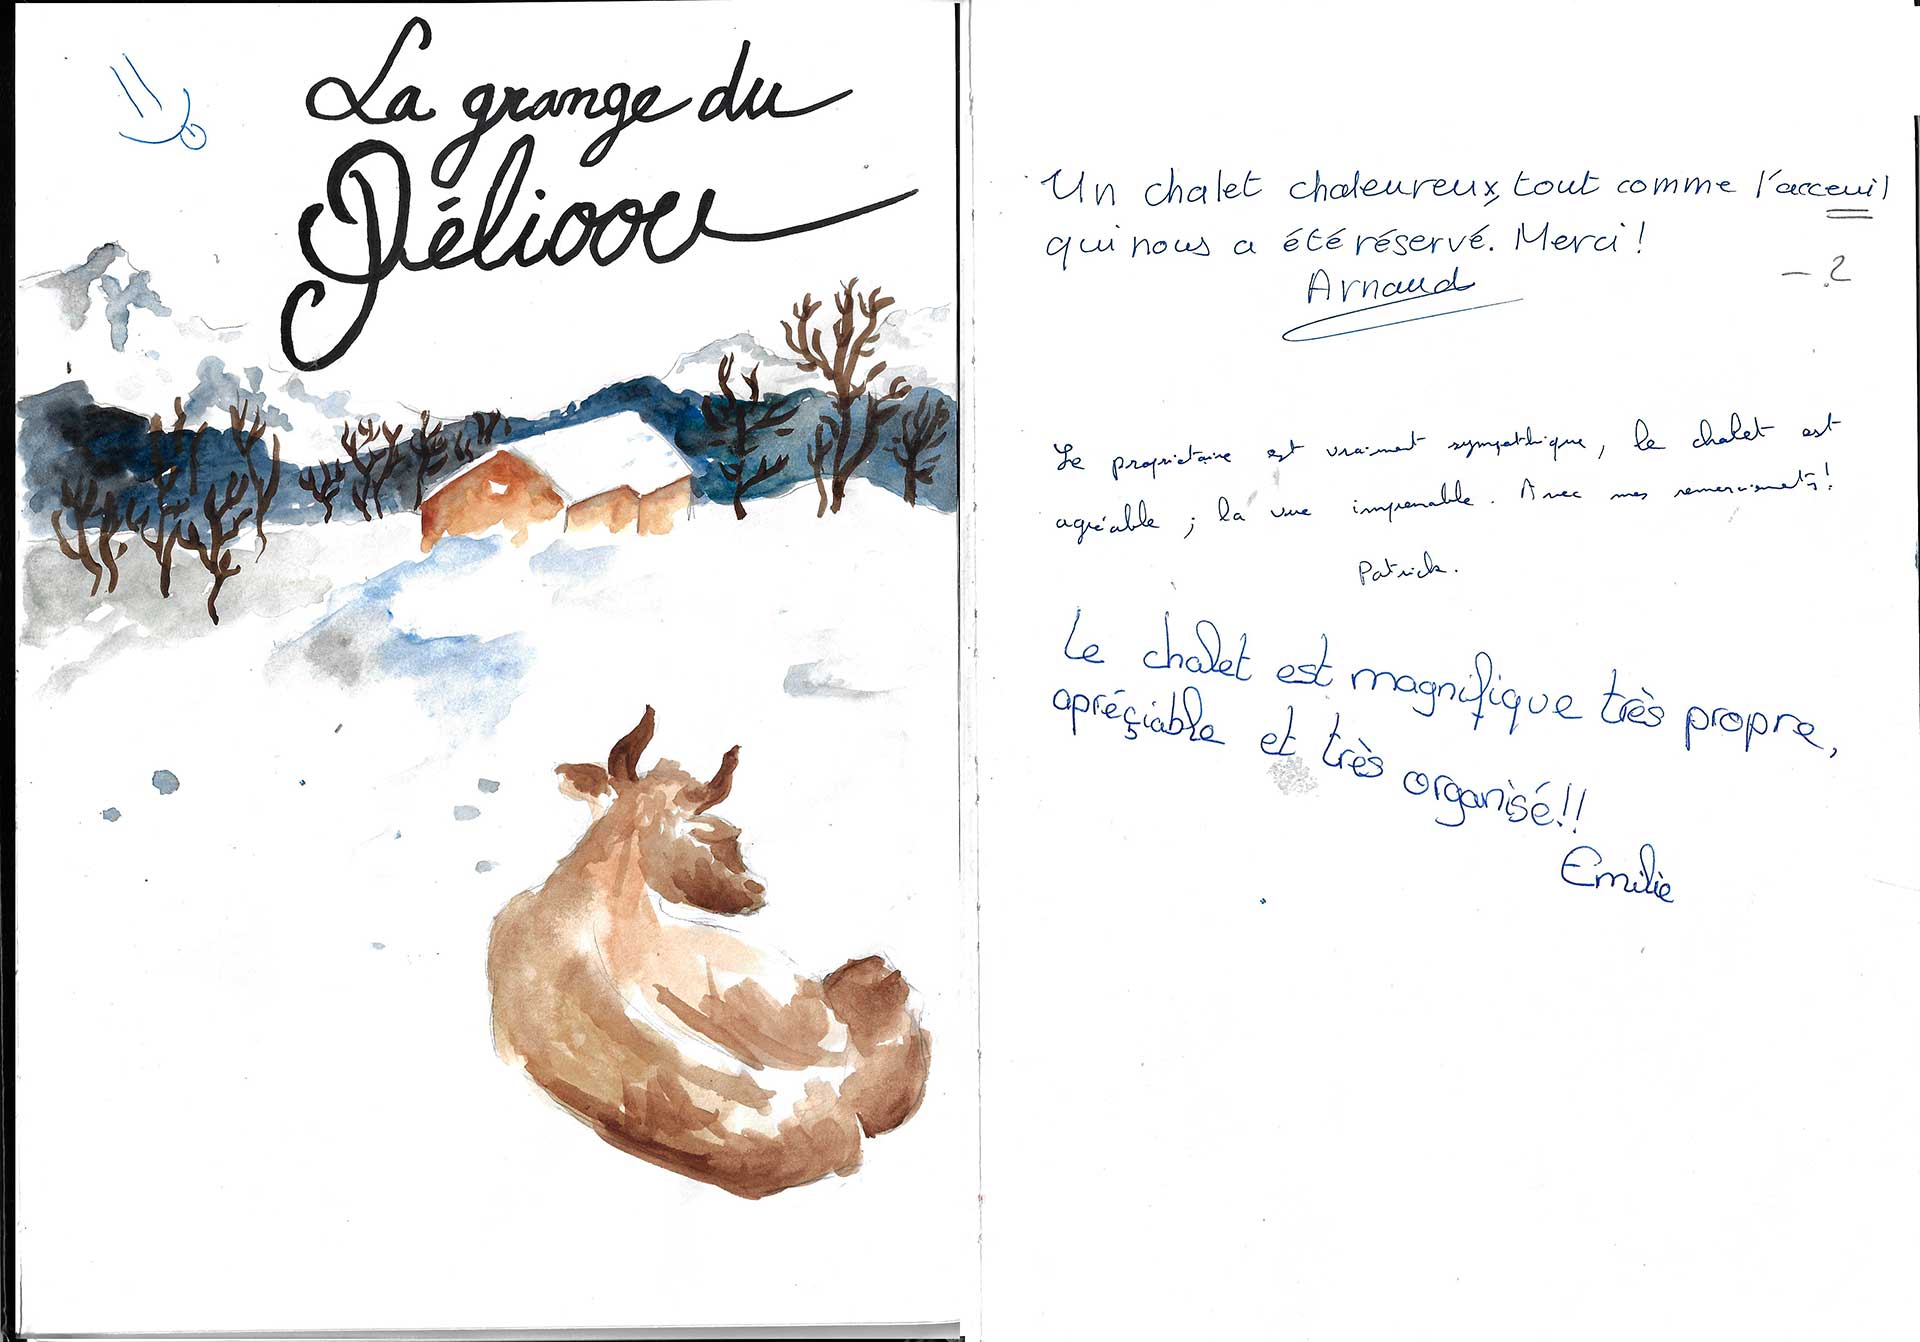 La grange du
Pélioou
Un chalet chaleureux, tout comme l'acceuil
qui nous a été réservé. Merci !
- 2
Arnaud
Le propriétaire est vraiment sympathique, le chalet est
agréable ; la vue imprenable. Avec mes remerciements !
Patrick.
Le chalet est magnifique très propre,
apréçiable et très organisé !!
Emilie